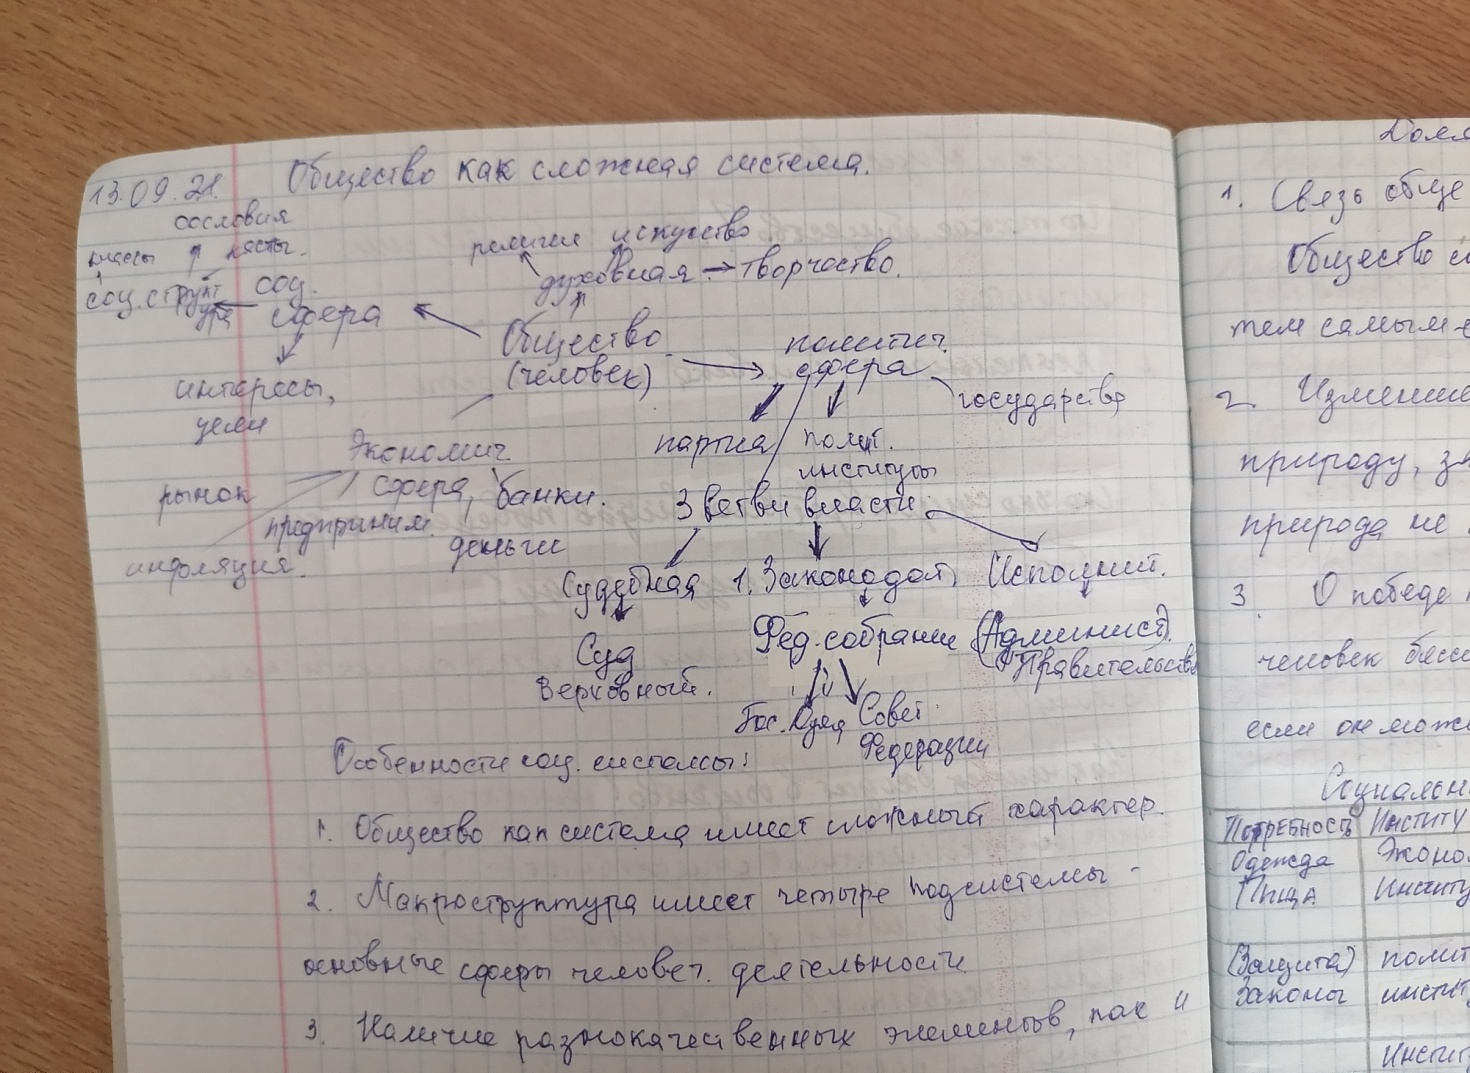 13.09.21.
Общество как сложная система.
сословия
классы касты.
соц. структ
ура
соц.
сфера
интересы,
цели
религия искусство
духовная → творчество.
Общество
(человек)
политич.
сфера
государство
партиа полит.
институты
Экономич.
сфера, банки.
рынок
предприним.
деньги
инфляция.
3 ветви власти.
Судебная 1. Законодат. Исполнит.
Суд
Верховный.
Фед. собрание (Админист).
Правительство
Гос. Дума Совет
Федерации
Особенности соц. системы:
1. Общество как система имеет сложный характер.
2. Макроструктура имеет четыре подсистемы -
основные сферы человеч. деятельности
3. Наличие разнокачественных элементов, как и
1. Связь обще
Общество
тем самым
2. Изменение
природу,
природа не
3. О победе
человек бесс
если он може
Социальн
Потребность Институ
Одежда Эконо
Пища Институ
(Защита) полит
Законы инсти
Инстит